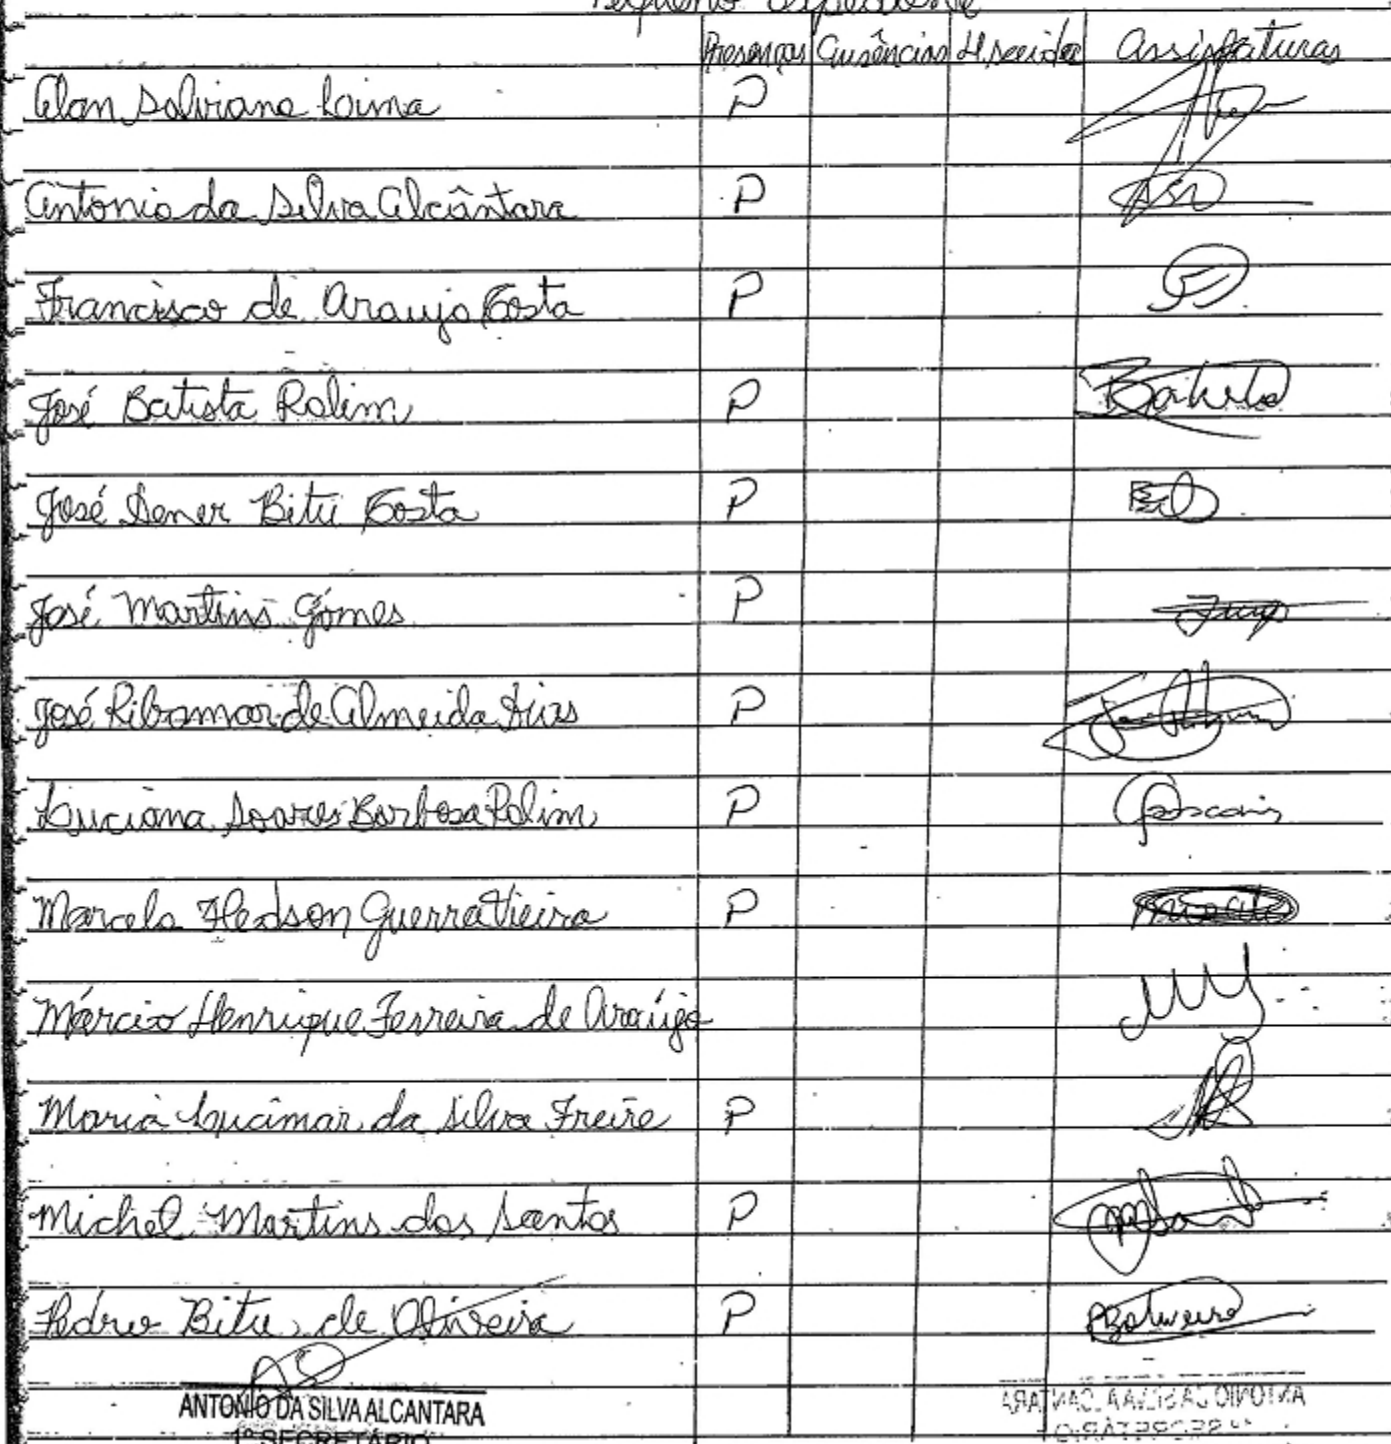 Pequeno Expediente
Presenças Ausências H. saída Assinaturas
Alan Salviano Lima P
Antonio da Silva Alcântara P
Francisco de Araujo Costa P
José Batista Rolim P Batista
José Sener Bitu Costa P
José Martins Gomes P
José Ribamar de Almeida Dias P
Luciana Soares Barbosa Rolim P
Marcelo Hedson Guerra Vieira P
Márcio Henrique Ferreira de Araújo
Maria Lucimar da Silva Freire P
Michel Martins dos Santos P
Pedro Bitu de Oliveira P PBOliveira
ANTONIO DA SILVA ALCANTARA
1º SECRETÁRIO